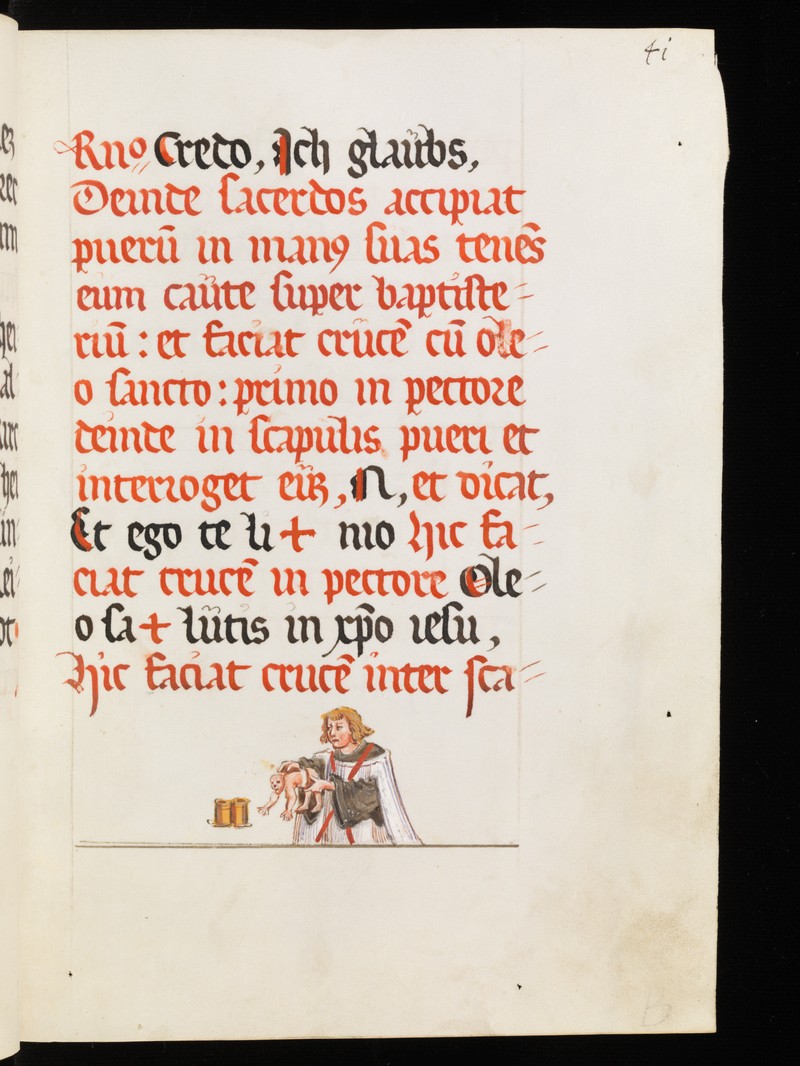 4i
Rno Credo, Ich glaübs,
Deinde sacerdos accipiat
puerū in man9 suas tenēs
eum caüte super baptiste=
riū : et faciat crücē cū ole=
o sancto : primo in pectore
deinde in scapulis pueri et
interroget eiꝰ, N, et dicat,
Et ego te li + nio hic fa=
ciat crucē in pectore Ole=
o sa + lütis in xp̄o iesu,
Hic faciat crucē inter sca=